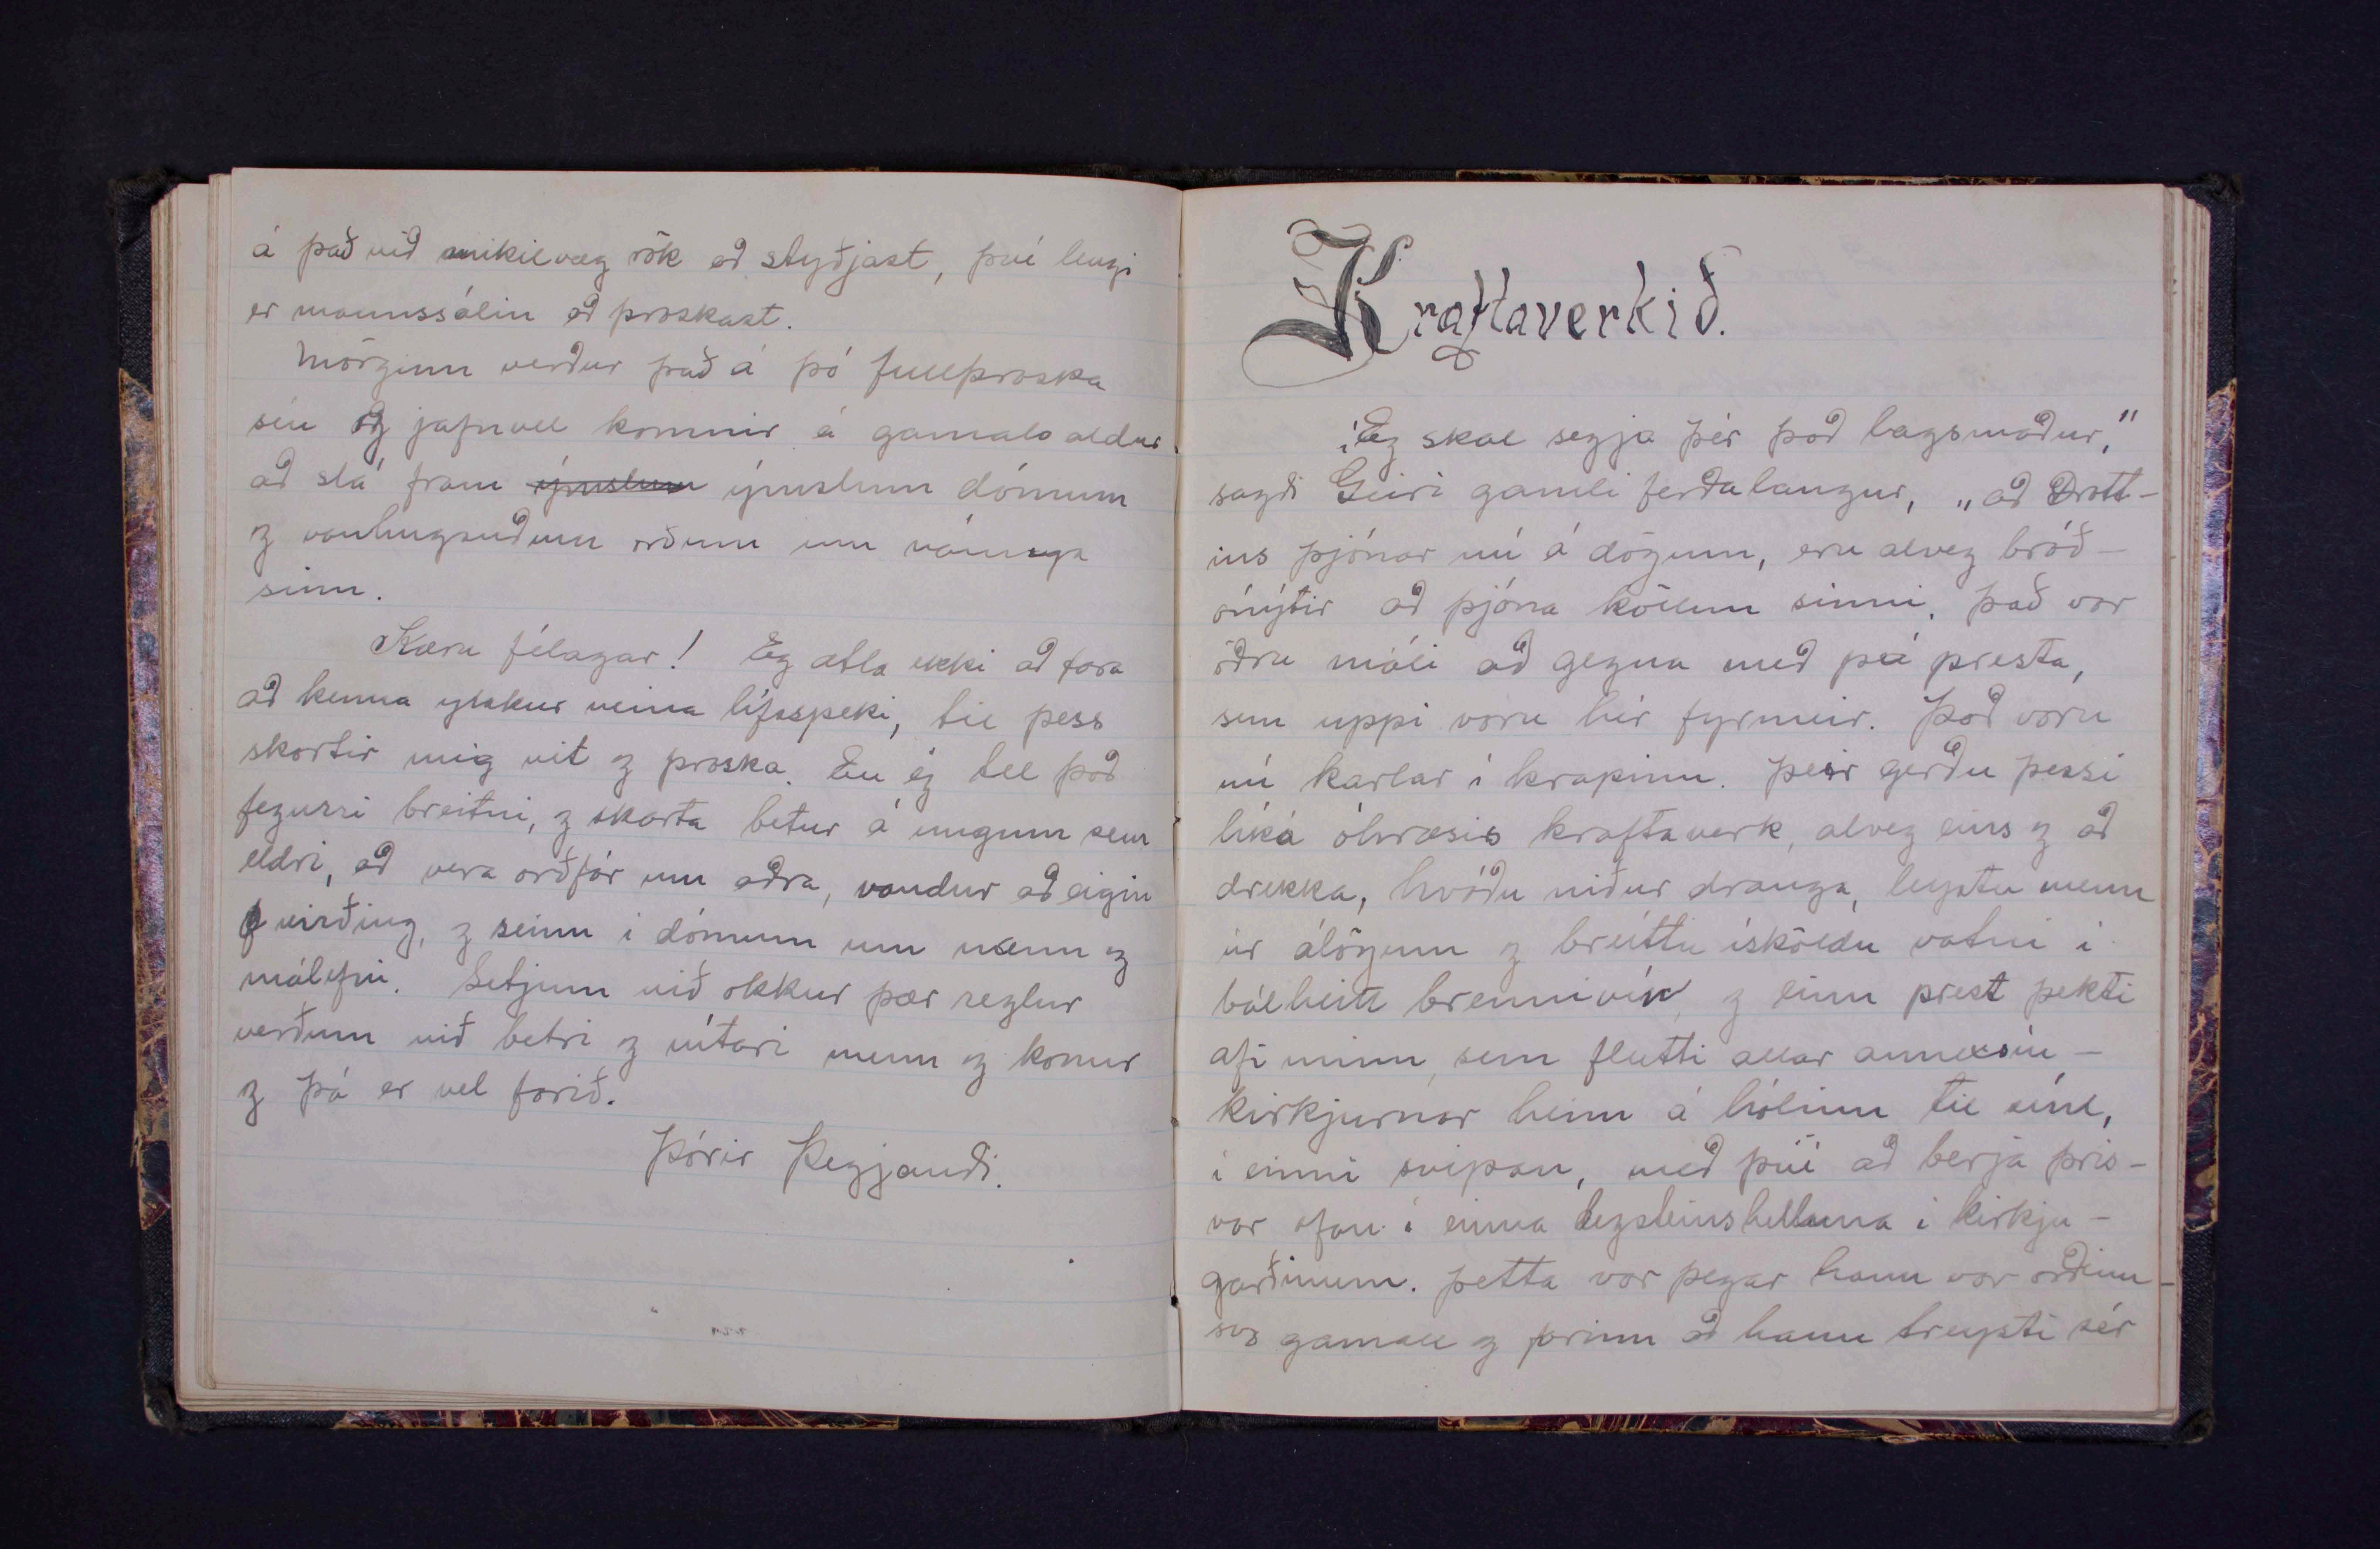 á það við mikilvæg rök að styðjast, því lengi
er mannssálin að þroskast.
Mörgum verður það á þó fullþroska
séu og jafnvel komnir á gamals aldur
að slá fram ýmslum ýmslum dómum
og vanhugsuðum orðum um náunga
sinn.
Kæru félagar! Eg ætla ekki að fara
að kenna ykkur neina lífsspeki, til þess
skortir mig vit og þroska. En ég tel það
fegurri breitni, og skarta betur á ungum sem
eldri, að vera orðfár um aðra, vandur að eigin
virðing, og seinn í dómum um menn og
málefni. Setjum við okkur þær reglur
verðum við betri og nýtari menn og konur
og þá er vel farið.
Þórir Þegjandi.
Kraftaverkið.
„Eg skal segja þér það lagsmaður,"
sagði Geiri gamli ferðalangur, „að Drott-
ins þjónar nú á dögum, eru alveg bráð-
ónýtir að þjóna köllun sinni. Það var
öðru máli að gegna með þá presta,
sem uppi voru hér fyrmeir. Það voru
nú karlar í krapinu. Þeir gerðu þessi
líka óhræsis kraftaverk, alveg eins og að
drekka, kváðu niður drauga, leystu menn
úr álögum og breittu ísköldu vatni í
bálheitt brennivín, og einn prest þekti
afi minn, sem flutti allar annexíu-
kirkjurnar heim á hólinn til sín,
í einni svipan, með því að berja þris-
var ofan í einna legsteinshelluna í kirkju-
garðinum. Þetta var þegar hann var orðinn
svo gamall og þrinn að hann treysti sér